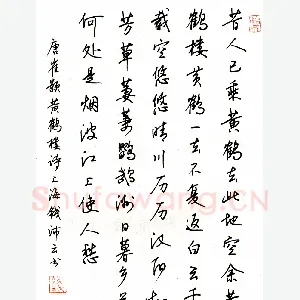 昔人已乘黄鹤去此地空余黄
鹤楼黄鹤一去不复返白云千
载空悠悠晴川历历汉阳
芳草萋萋鹦鹉洲日暮乡
何处是烟波江上使人愁
唐崔颢黄鹤楼诗上海钱沛云书
Shufawang.CN